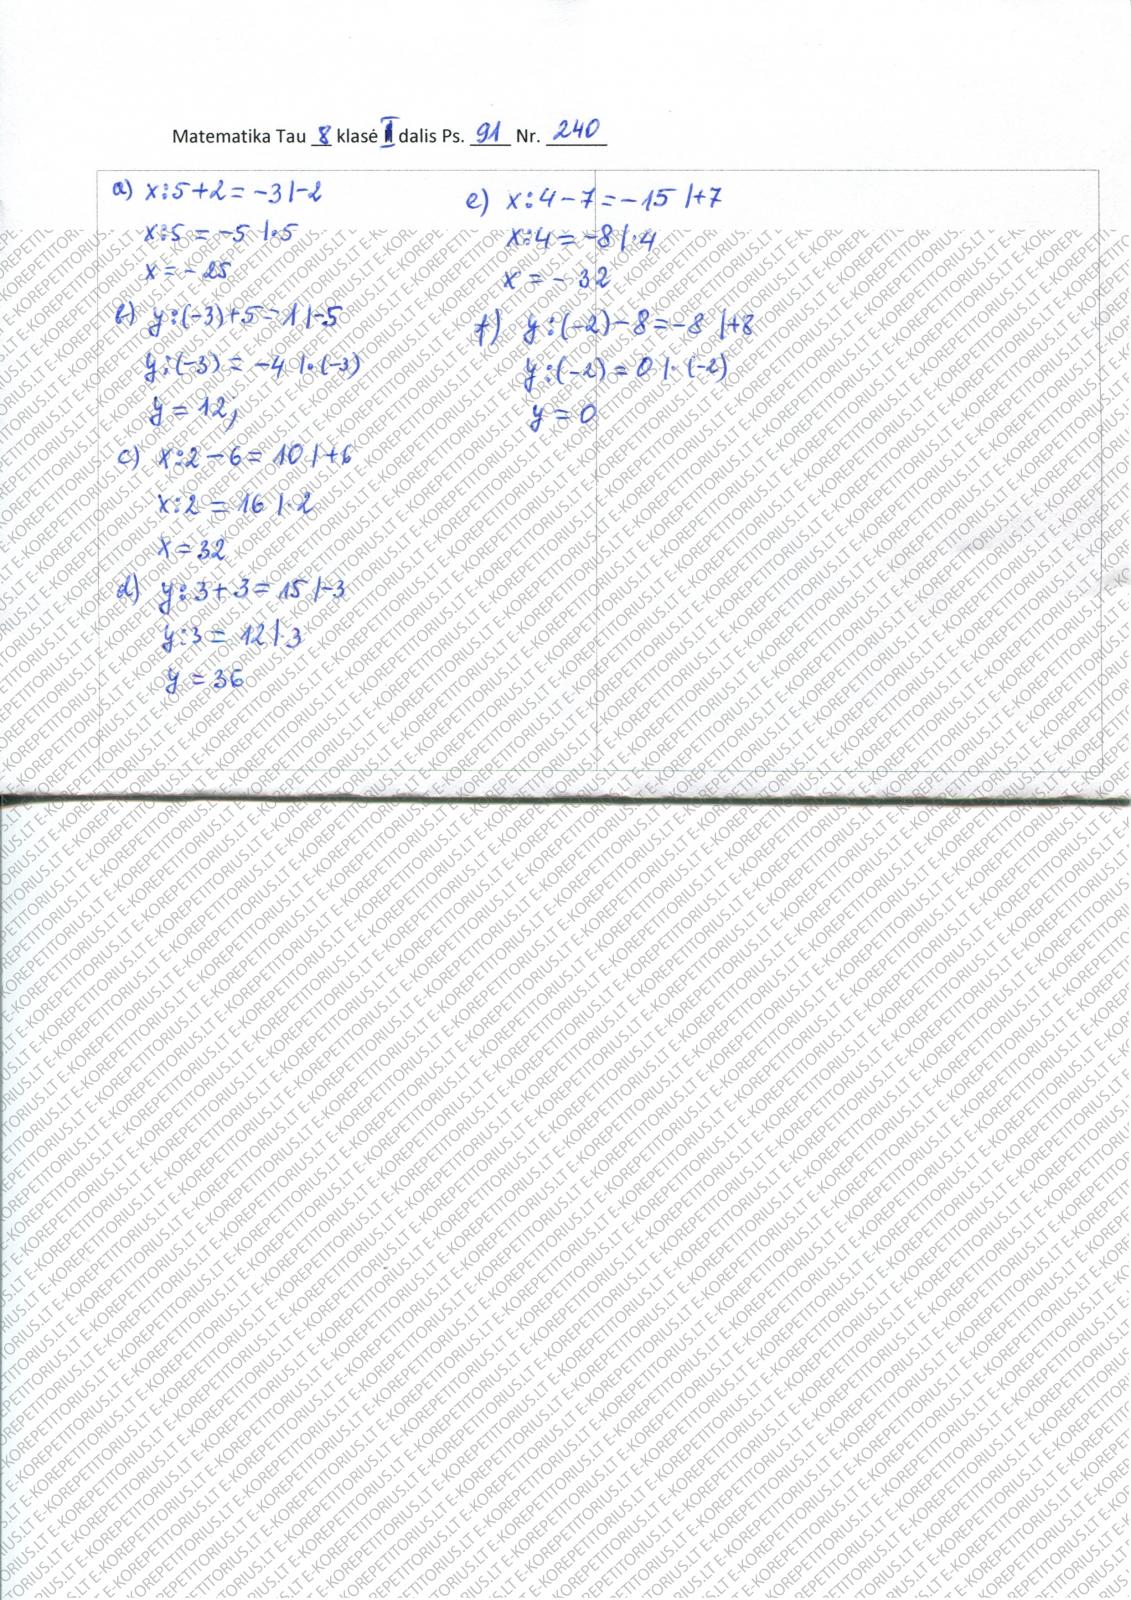 Matematika Tau 8 klasė I dalis Ps. 91 Nr. 240
a) x:5+2=-3 |-2
x:5 = -5 |·5
x = -25
b) y:(-3)+5=1 |-5
y:(-3) = -4 |·(-3)
y = 12;
c) x:2-6=10 |+6
x:2 = 16 |·2
x=32
d) y:3+3=15 |-3
y:3 = 12 |·3
y = 36
e) x:4-7=-15 |+7
x:4=-8 |·4
x = -32
f) y:(-2)-8=-8 |+8
y:(-2)=0 |·(-2)
y=0
E-KOREPETITORIUS.LT